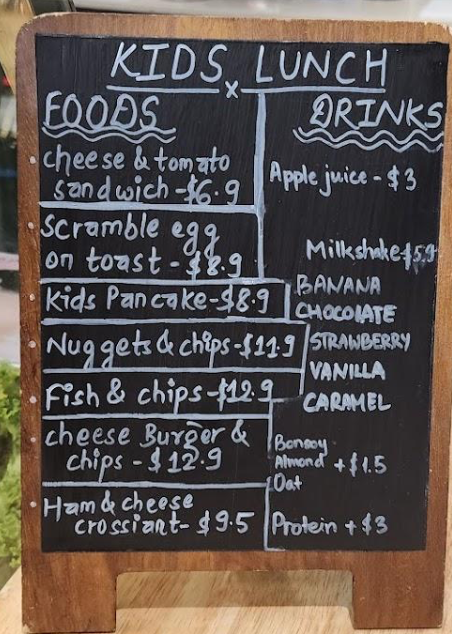 KIDS LUNCH
x
FOODS
cheese & tomato
sandwich - $6.9
Scramble egg
on toast - $8.9
Kids Pancake - $8.9
Nuggets & chips - $11.9
Fish & chips - $12.9
cheese Burger &
chips - $12.9
Ham & cheese
crossiant - $9.5
DRINKS
Apple juice - $3
Milkshake $5.9
BANANA
CHOCOLATE
STRAWBERRY
VANILLA
CARAMEL
Bonsoy
Almond + $1.5
Oat
Protein + $3